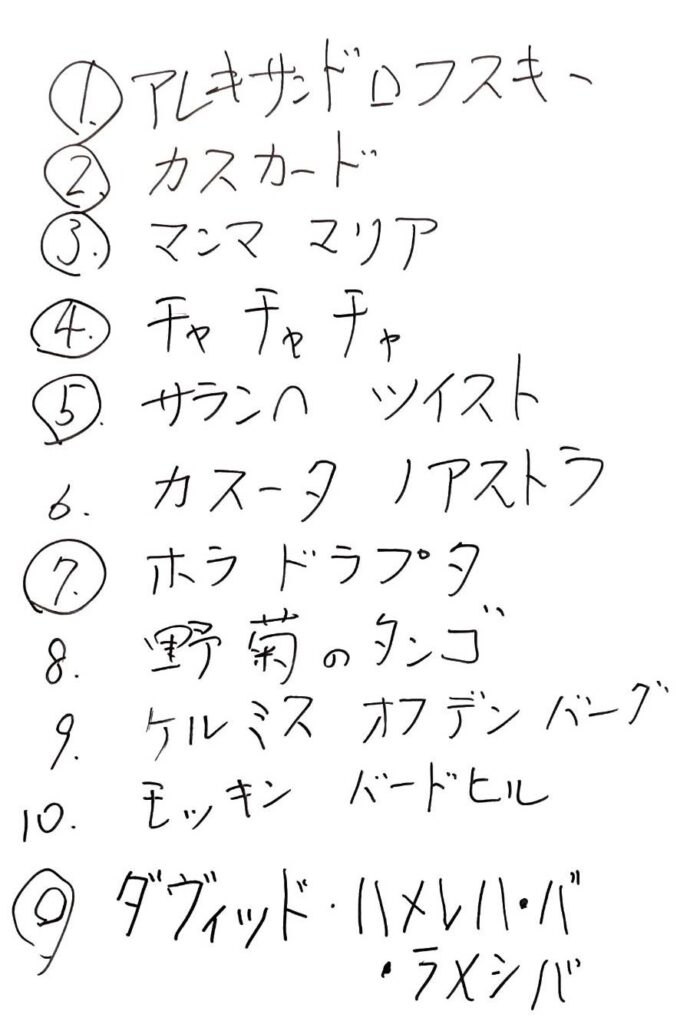 ①. アレキサンドロフスキー
②. カスカード
③. マンマ マリア
④. チャ チャ チャ
⑤. サランヘ ツイスト
6. カスータ ノアストラ
⑦. ホラ ドラプタ
8. 野菊のタンゴ
9. ケルミス オフデン バーグ
10. モッキン バードヒル
⑨ ダヴィッド・ハメレハ・バ
・ラメシバ